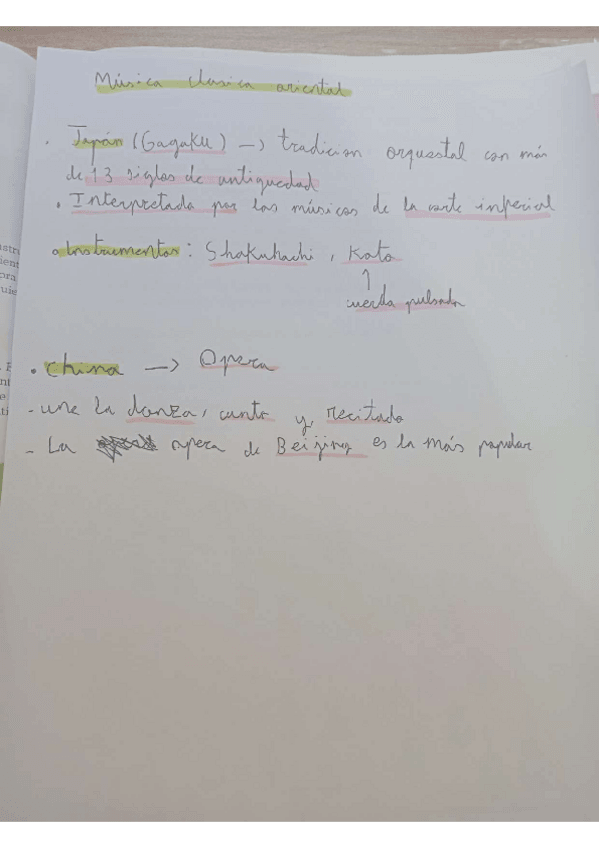 Música clasica oriental
· Japón (Gagaku) -> tradicion orquestal con más
de 13 siglos de antiguedad
· Interpretada por los músicos de la corte imperial
o Instrumentos: Shakuhachi, Koto
↑
cuerda pulsada
· China -> Opera
- une la danza, canto y recitado
- La opera de Beijing es la más popular